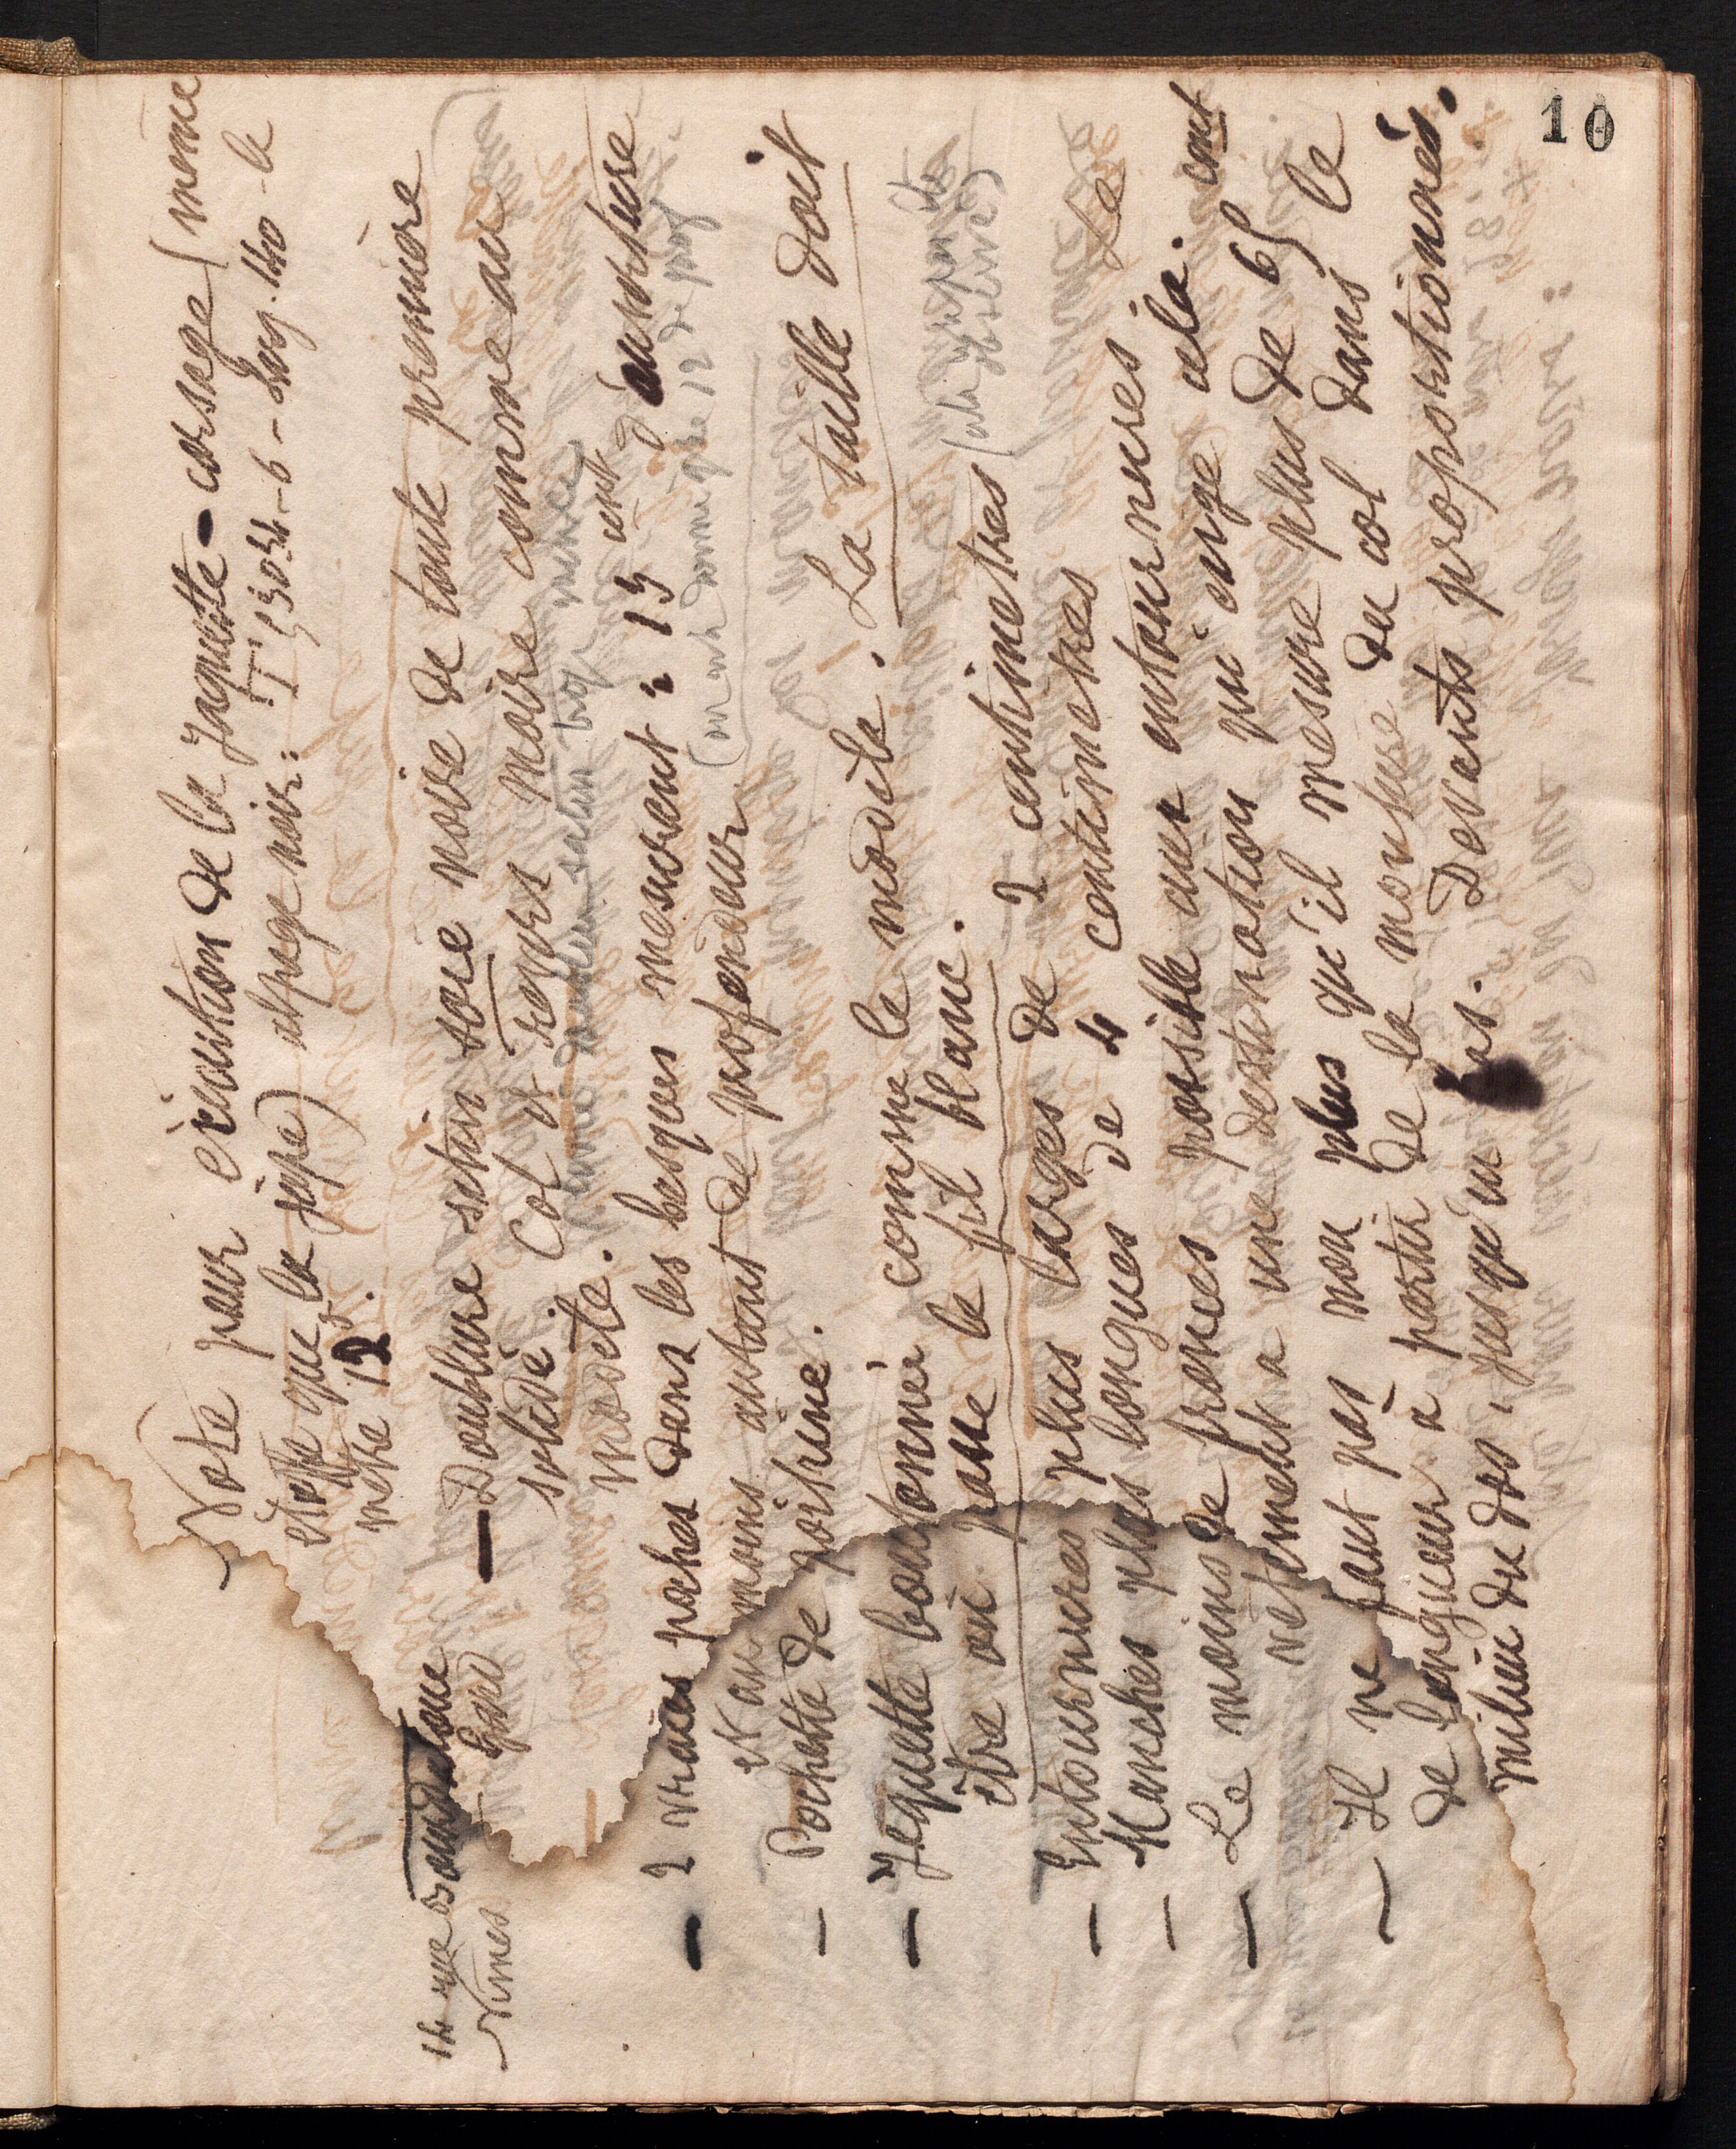 10
Note pour exécution de la Jaquette-corsage (même
étoffe que la jupe) alpaga noir: T 5034-6-Larg. 140 - le
mètre 12.
14 rue
Nîmes Gard
— Doublure satin soie noire de toute première
solidité Col et revers moire comme au
modèle. satin trop mince
— 2 vraies poches dans les basques mesurant: 15 cent d'ouverture
et au moins autant de profondeur (on m'a donné que 12 de prof
— Pochette de poitrine.
— Jaquette boutonnée comme le modèle. La taille doit
être où passe le fil blanc.
— Entournures plus larges de 2 centimètres
— Manches plus longues de 4 centimètres
— Le moins de fronces possible aux entournures. Le
vêtement a une destination qui exige cela.
— Il ne faut pas non plus qu'il mesure plus de 65 cent
de longueur à partir de la monture du col dans le
milieu du dos, jusqu'en bas. Devants proportionnés.